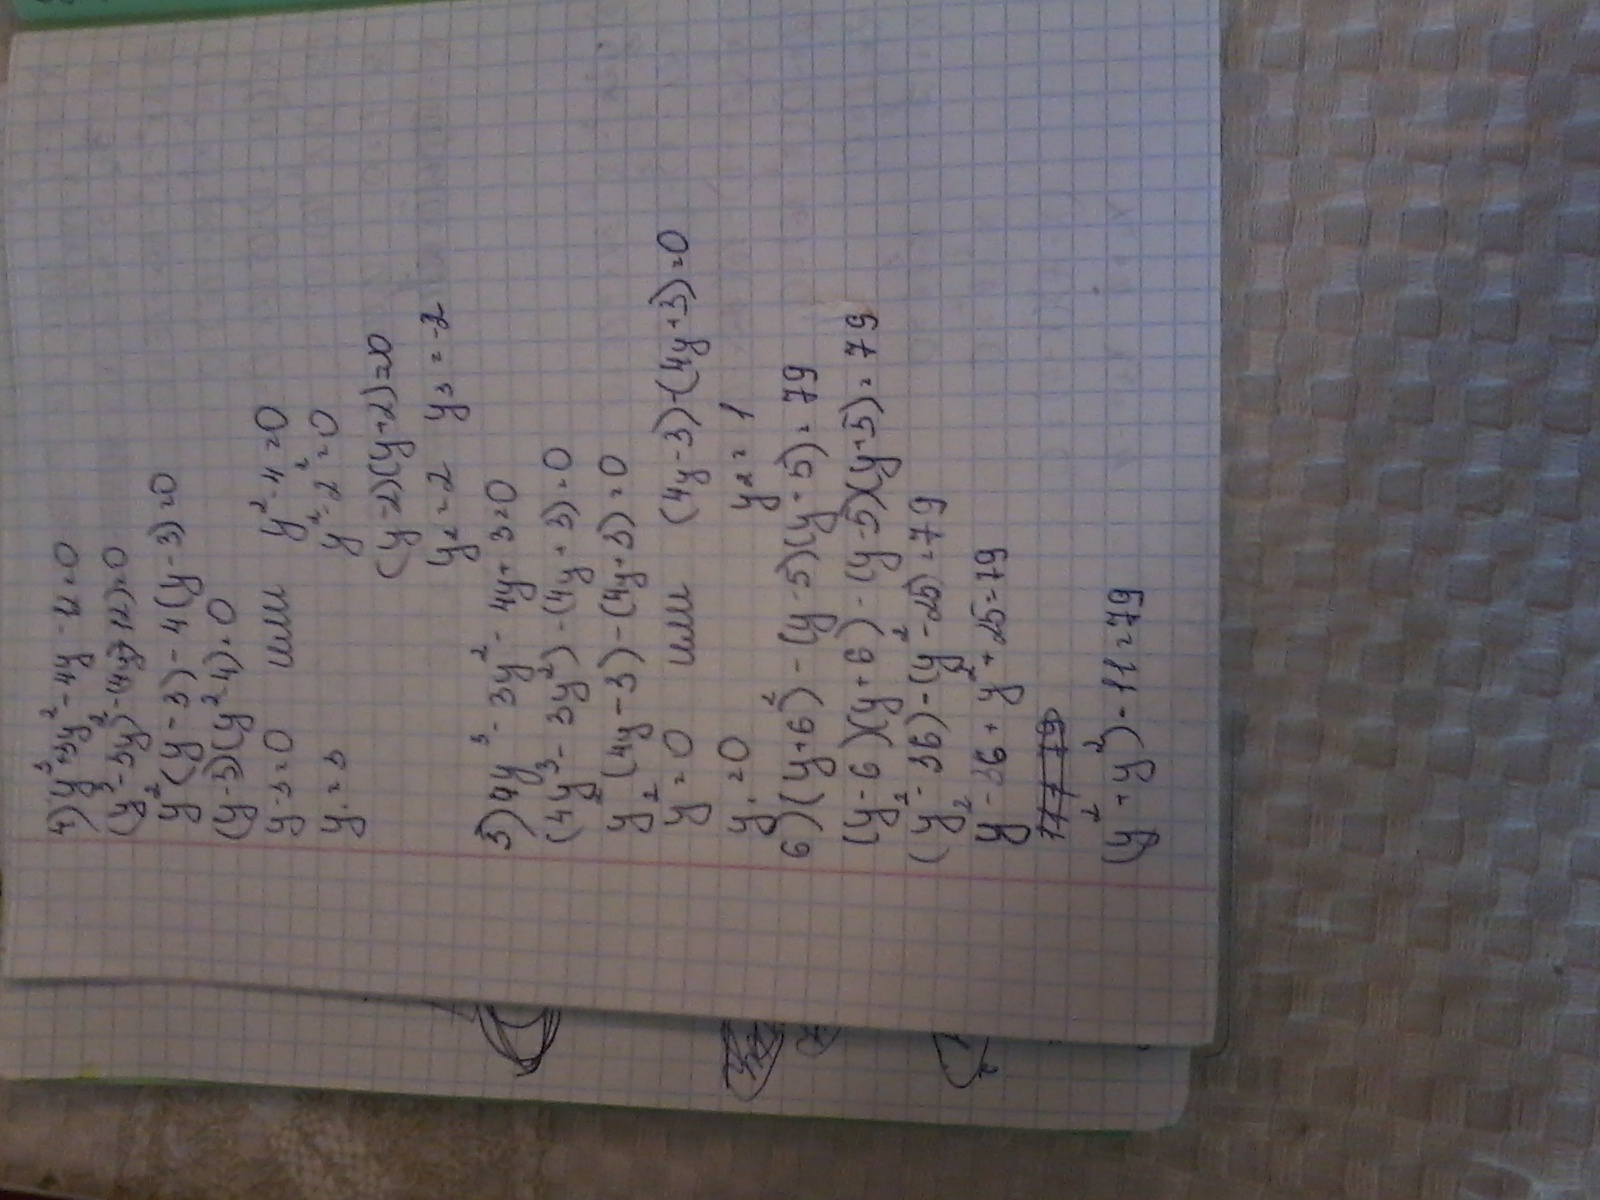 4) y³-3y²-4y-12=0
(y³-3y²)-(4y+12)=0
y²(y-3)-4(y-3)=0
(y-3)(y²-4)=0
y-3=0 или y²-4=0
y₁=3 y²-2²=0
(y-2)(y+2)=0
y₂=2 y₃=-2
5) 4y³-3y²-4y+3=0
(4y³-3y²)-(4y+3)=0
y²(4y-3)-(4y+3)=0
y²=0 или (4y-3)-(4y+3)=0
y₁=0 y₂=1
6) (y+6)²-(y-5)(y+5)=79
(y-6)(y+6)-(y-5)(y+5)=79
(y²-36)-(y²-25)=79
y²-36+y²+25=79
(y²+y²)-11=79